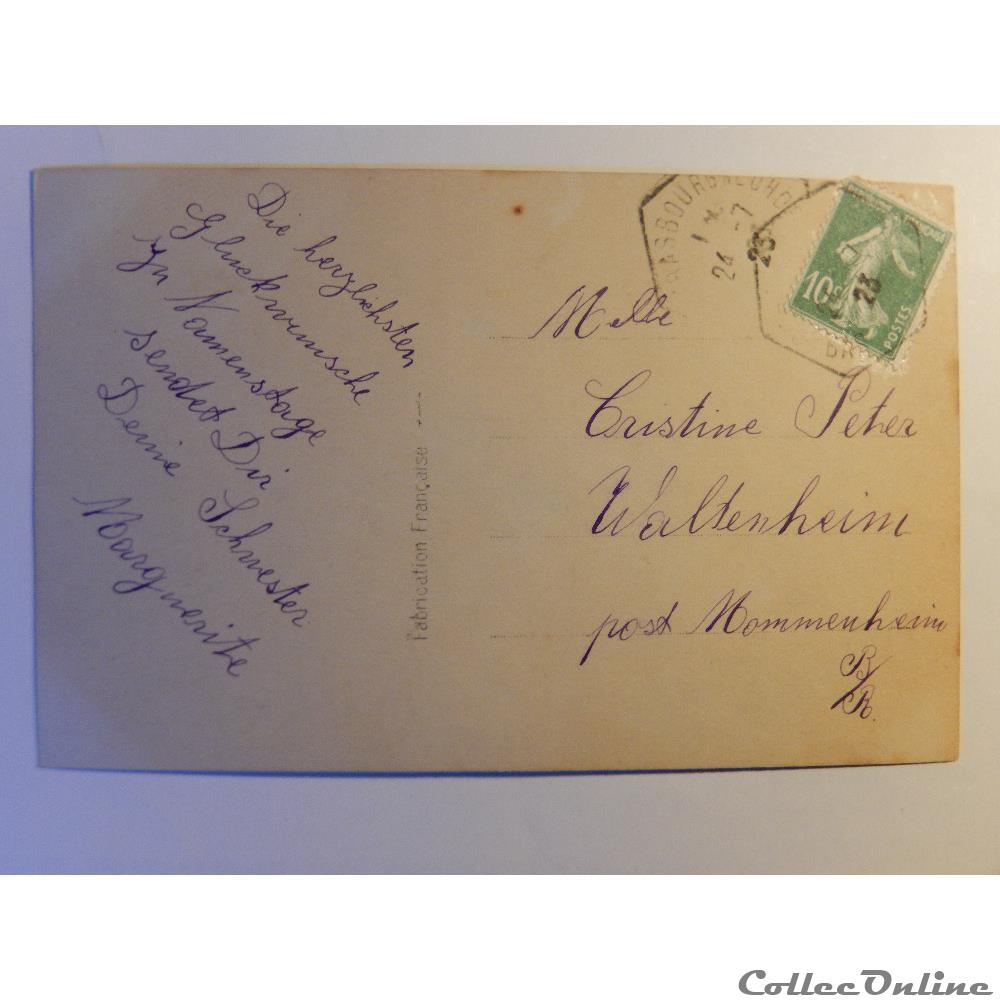 Die herzlichsten
Gluckwunsche
zu Namenstage
sendet Dir
Deine Schwester
Marguerite
Fabrication Française
24 -7
23
10c
23
POSTES
Melle
Cristine Peter
Waltenheim
post Mommenheim
B/R.
CollecOnline